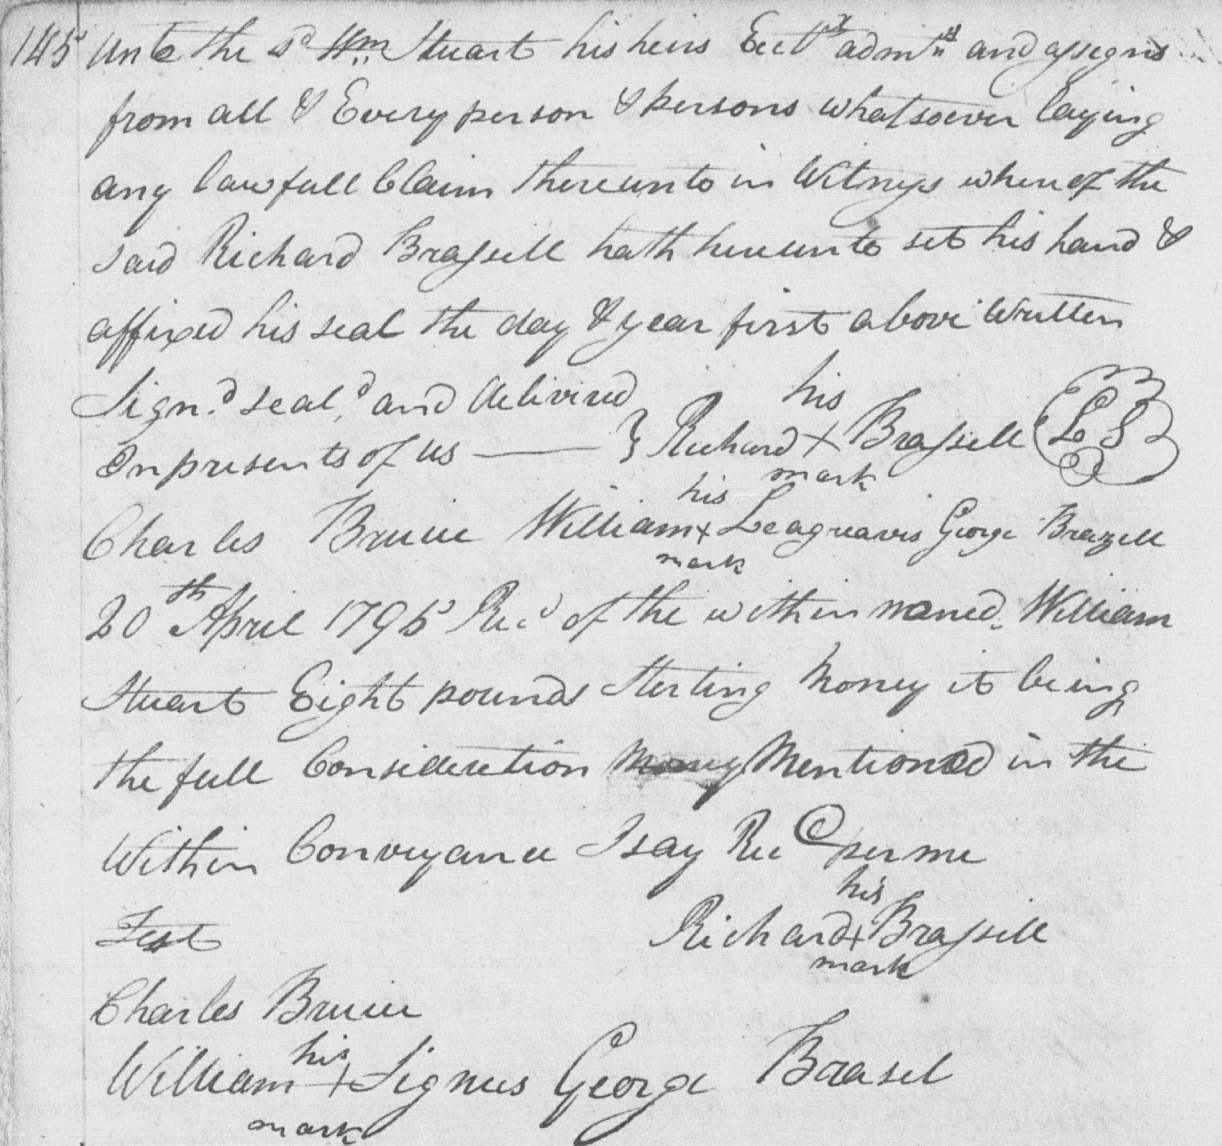 145 unto the sd Wm Stuart his heirs Exctrs admtrs and assigns
from all & Every person & persons whatsoever laying
any lawfull Claim thereunto in Witness whereof the
said Richard Brassell hath hereunto set his hand &
affixed his seal the day & year first above Written
Sign.d seal,d and delivired his
In presents of us — } Richard + Brassell LS
mark
his
Charles Bruce William + Leagreavis George Brazell
mark
20th April 1795 Rec.d of the within named William
Stuart Eight pounds Sterling Money it being
the full Consideration Mentioned in the
Within Conveyance I say Rec per me
his
Test Richard + Brassell
mark
Charles Bruce
his
William + George Brasel
mark